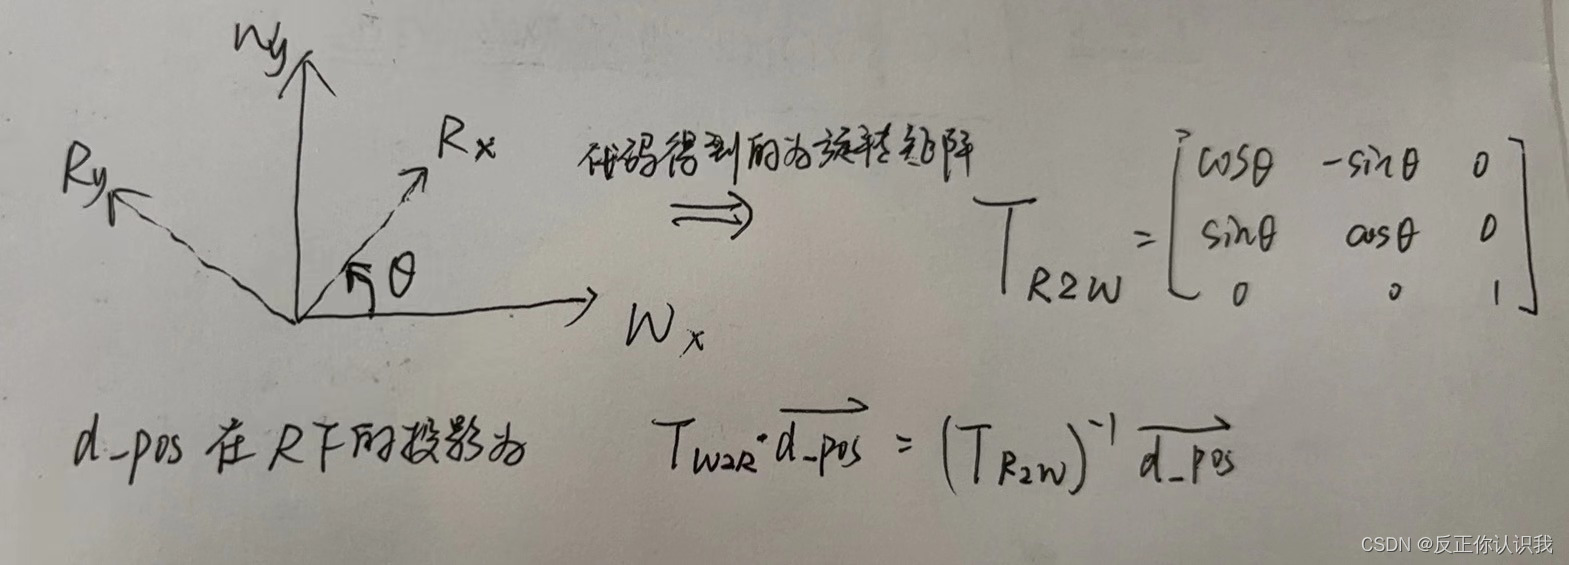 Wy
Ry
Rx
θ
Wx
代码得到的为旋转矩阵
⇒
T_R2W = [cosθ -sinθ 0
sinθ cosθ 0
0 0 1]
d_pos 在R下的投影为 T_W2R · d_pos = (T_R2W)^-1 d_pos
CSDN @反正你认识我